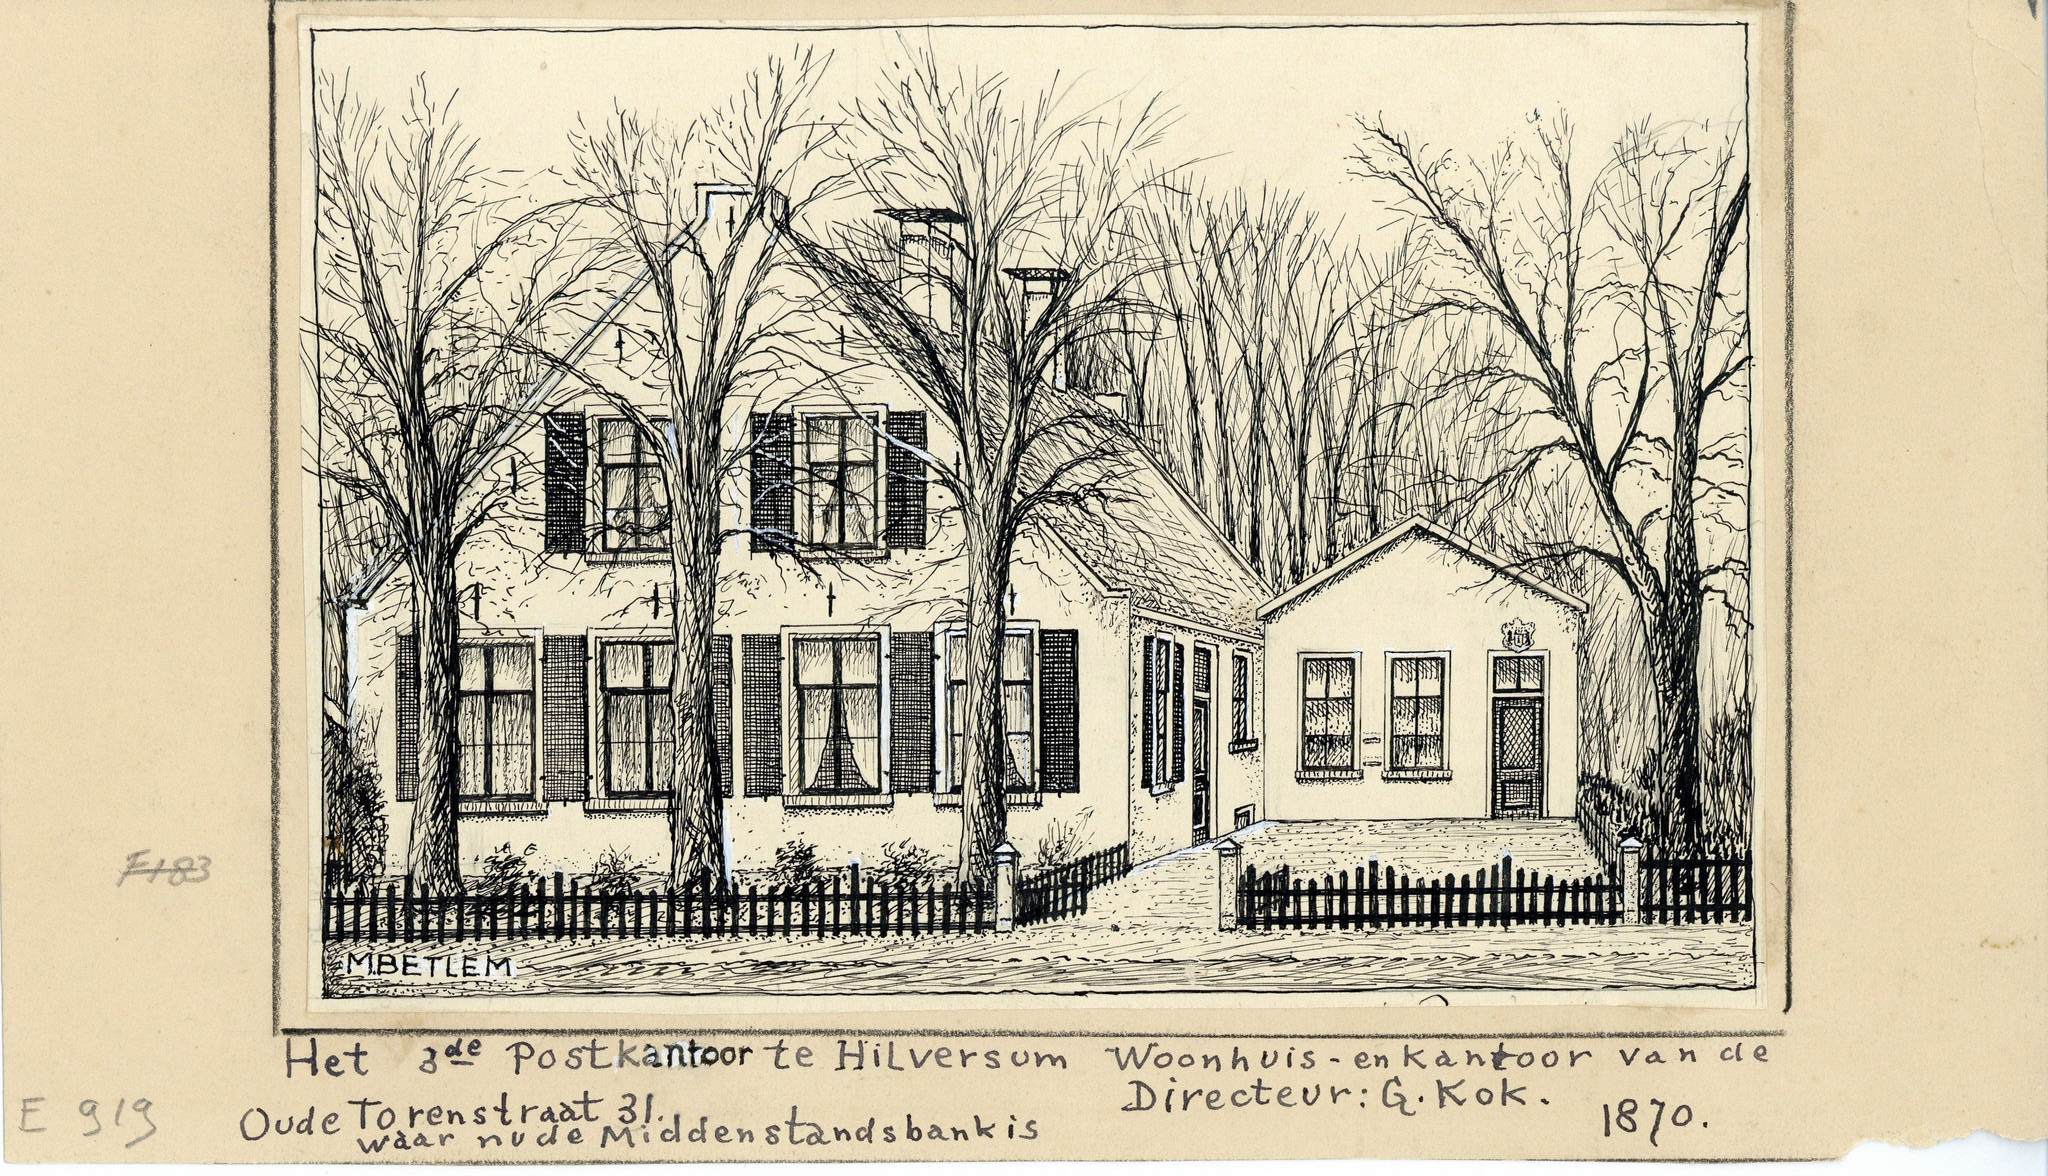 M.BETLEM
F183
Het 3de Postkantoor te Hilversum Woonhuis-en kantoor van de
Directeur: G. Kok.
Oude Torenstraat 31.
1870.
waar nu de Middenstandsbank is
E 919